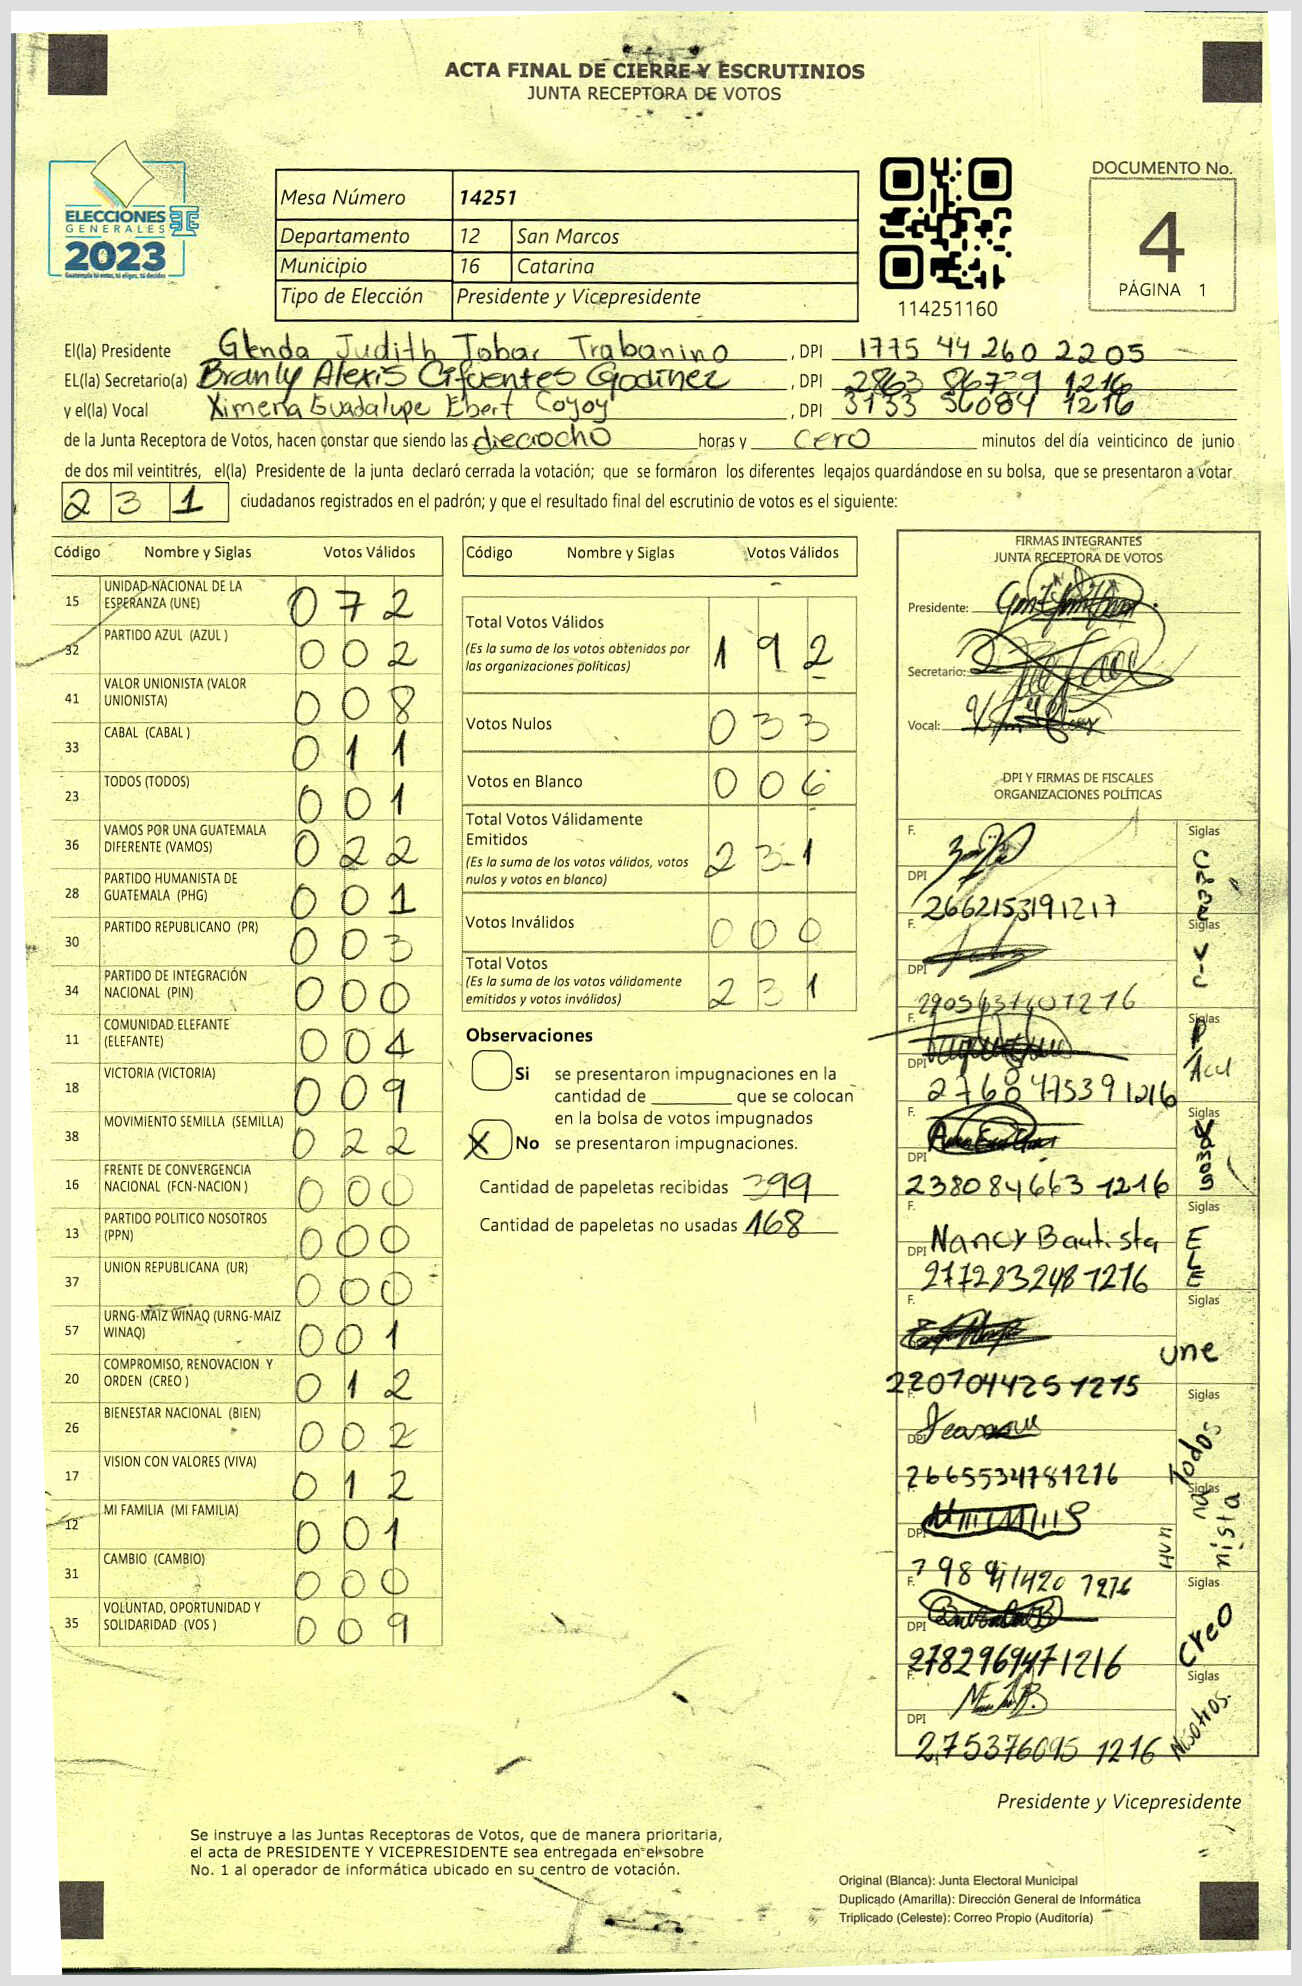 ACTA FINAL DE CIERRE Y ESCRUTINIOS
JUNTA RECEPTORA DE VOTOS
ELECCIONES
GENERALES
2023
Guatemala tú eres, tú eliges, tú decides
Mesa Número 14251
Departamento 12 San Marcos
Municipio 16 Catarina
Tipo de Elección Presidente y Vicepresidente
114251160
DOCUMENTO No.
4
PÁGINA 1
El(la) Presidente Glenda Judith Tobar Trabanino , DPI 1775 44260 2205
EL(la) Secretario(a) Branly Alexis Cifuentes Godinez , DPI 2863 86739 1216
y el(la) Vocal Ximena Guadalupe Ebert Coyoy , DPI 3153 56084 1216
de la Junta Receptora de Votos, hacen constar que siendo las dieciocho horas y cero minutos del día veinticinco de junio
de dos mil veintitrés, el(la) Presidente de la junta declaró cerrada la votación; que se formaron los diferentes legajos guardándose en su bolsa, que se presentaron a votar
231 ciudadanos registrados en el padrón; y que el resultado final del escrutinio de votos es el siguiente:
Código Nombre y Siglas Votos Válidos
15 UNIDAD NACIONAL DE LA ESPERANZA (UNE) 072
32 PARTIDO AZUL (AZUL ) 002
41 VALOR UNIONISTA (VALOR UNIONISTA) 008
33 CABAL (CABAL ) 011
23 TODOS (TODOS) 001
36 VAMOS POR UNA GUATEMALA DIFERENTE (VAMOS) 022
28 PARTIDO HUMANISTA DE GUATEMALA (PHG) 001
30 PARTIDO REPUBLICANO (PR) 003
34 PARTIDO DE INTEGRACIÓN NACIONAL (PIN) 000
11 COMUNIDAD ELEFANTE (ELEFANTE) 004
18 VICTORIA (VICTORIA) 009
38 MOVIMIENTO SEMILLA (SEMILLA) 022
16 FRENTE DE CONVERGENCIA NACIONAL (FCN-NACION ) 000
13 PARTIDO POLITICO NOSOTROS (PPN) 000
37 UNION REPUBLICANA (UR) 000
57 URNG-MAIZ WINAQ (URNG-MAIZ WINAQ) 001
20 COMPROMISO, RENOVACION Y ORDEN (CREO ) 012
26 BIENESTAR NACIONAL (BIEN) 002
17 VISION CON VALORES (VIVA) 012
12 MI FAMILIA (MI FAMILIA) 001
31 CAMBIO (CAMBIO) 000
35 VOLUNTAD, OPORTUNIDAD Y SOLIDARIDAD (VOS ) 009
Código Nombre y Siglas Votos Válidos
Total Votos Válidos 192
(Es la suma de los votos obtenidos por
las organizaciones políticas)
Votos Nulos 033
Votos en Blanco 006
Total Votos Válidamente
Emitidos 231
(Es la suma de los votos válidos, votos
nulos y votos en blanco)
Votos Inválidos 000
Total Votos 231
(Es la suma de los votos válidamente
emitidos y votos inválidos)
Observaciones
Si se presentaron impugnaciones en la
cantidad de ________ que se colocan
en la bolsa de votos impugnados
X No se presentaron impugnaciones.
Cantidad de papeletas recibidas 399
Cantidad de papeletas no usadas 168
FIRMAS INTEGRANTES
JUNTA RECEPTORA DE VOTOS
Presidente:
Secretario:
Vocal:
DPI Y FIRMAS DE FISCALES
ORGANIZACIONES POLÍTICAS
F. Siglas
DPI
2662153191217
F. Siglas
DPI
F. Siglas
DPI
2768475391216
F. Siglas
DPI
238084663 1216
F. Siglas
DPI Nancy Bautista ELE
277283248 1216
F. Siglas
une
220704425 1215
Siglas
DPI
Todos
2665534781216
Siglas
DPI
nista
F. Siglas
DPI
Creo
2782969471216
F. Siglas
DPI
Nosotros.
275376095 1216
Presidente y Vicepresidente
Se instruye a las Juntas Receptoras de Votos, que de manera prioritaria,
el acta de PRESIDENTE Y VICEPRESIDENTE sea entregada en el sobre
No. 1 al operador de informática ubicado en su centro de votación.
Original (Blanca): Junta Electoral Municipal
Duplicado (Amarilla): Dirección General de Informática
Triplicado (Celeste): Correo Propio (Auditoría)